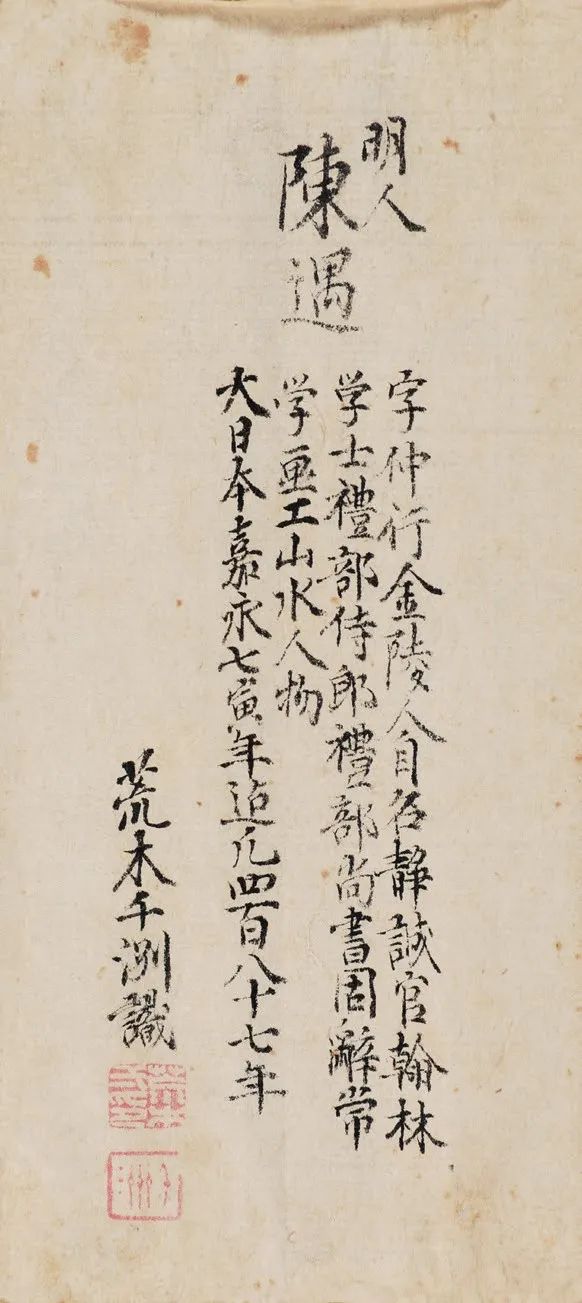 明人
陳遇
字仲行金陵人自名靜誠官翰林
学士禮部侍郎禮部尚書固辭常
学画工山水人物
大日本嘉永七寅年迠凡四百八十七年
荒木千洲識